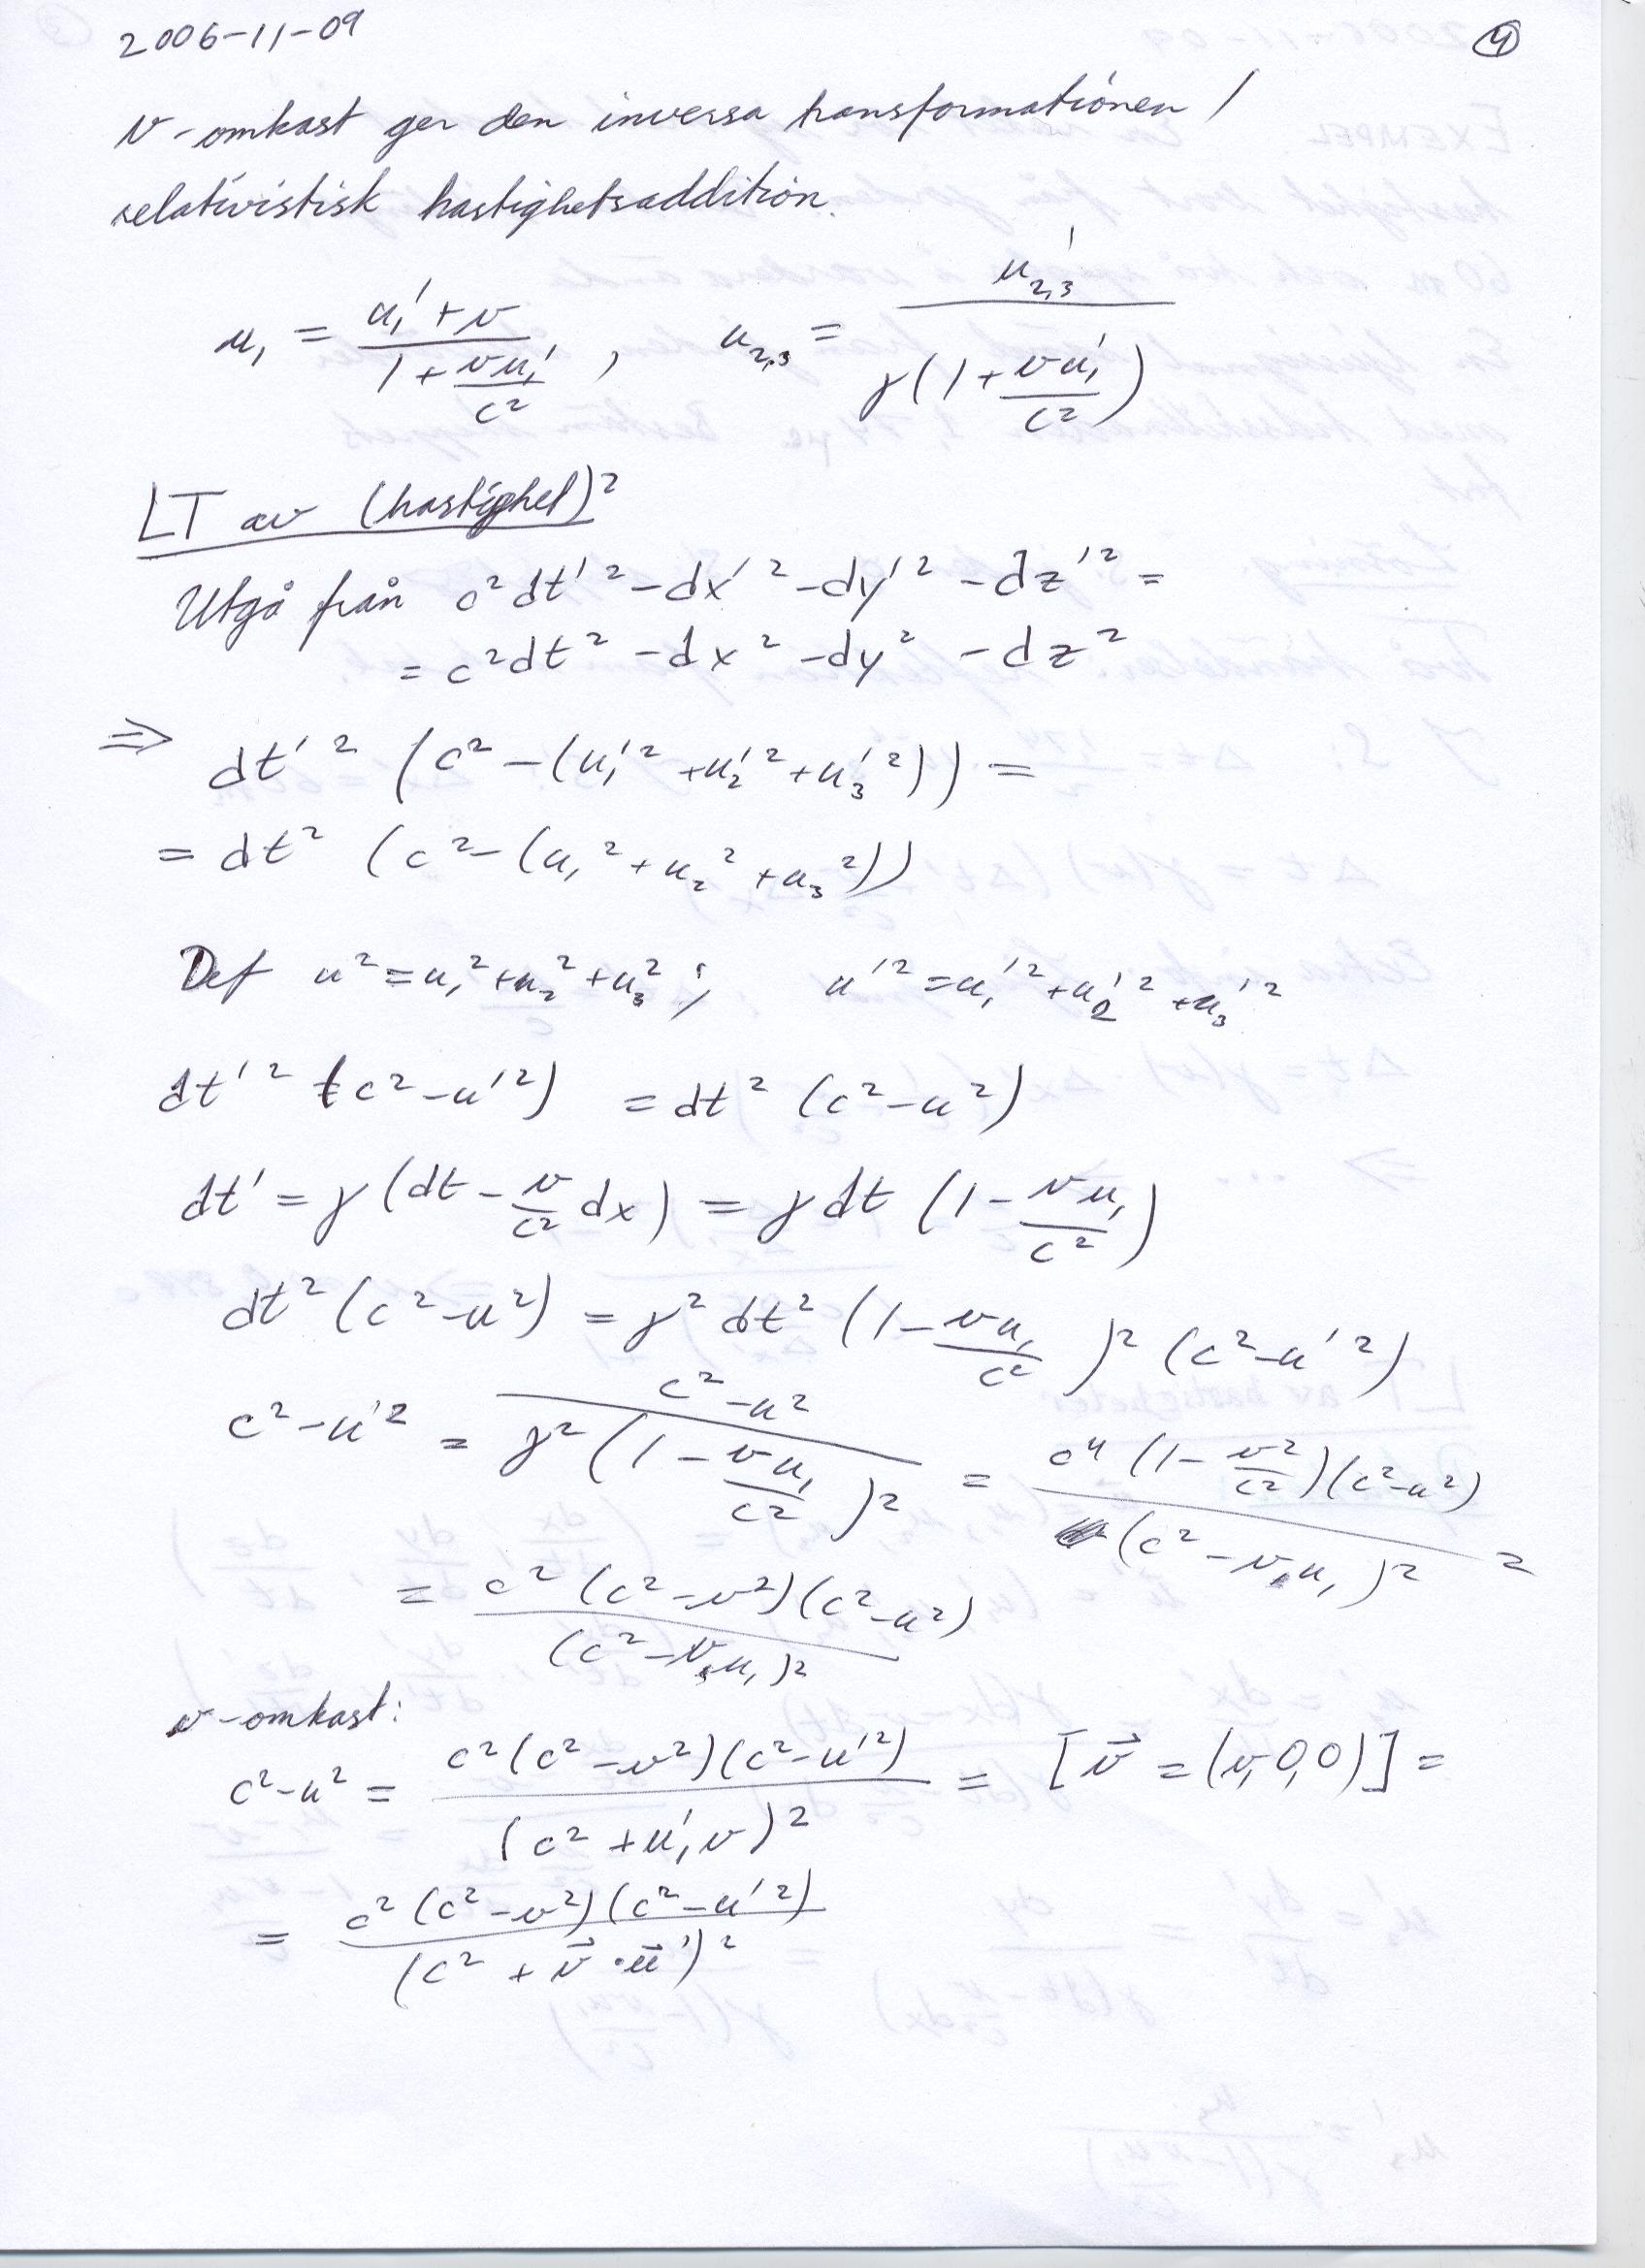 2006-11-09 ④
v-omkast ger den inversa transformationen /
relativistisk hastighetsaddition.
u₁ = (u₁' + v) / (1 + vu₁'/c²) , u₂,₃ = u₂,₃' / (γ(1 + vu₁'/c²))
LT av (hastighet)²
Utgå från c²dt'² - dx'² - dy'² - dz'² =
= c²dt² - dx² - dy² - dz²
⇒ dt'² (c² - (u₁'² + u₂'² + u₃'²)) =
= dt² (c² - (u₁² + u₂² + u₃²))
Def u² = u₁² + u₂² + u₃² ; u'² = u₁'² + u₂'² + u₃'²
dt'² (c² - u'²) = dt² (c² - u²)
dt' = γ(dt - v/c² dx) = γ dt (1 - vu₁/c²)
dt² (c² - u²) = γ² dt² (1 - vu₁/c²)² (c² - u'²)
c² - u'² = (c² - u²) / (γ² (1 - vu₁/c²)²) = c⁴ (1 - v²/c²)(c² - u²) / (c² - vu₁)² =
= c² (c² - v²)(c² - u²) / (c² - vu₁)²
v-omkast:
c² - u² = c² (c² - v²)(c² - u'²) / (c² + u₁'v)² = [v⃗ = (v,0,0)] =
= c² (c² - v²)(c² - u'²) / (c² + v⃗ · u⃗')²